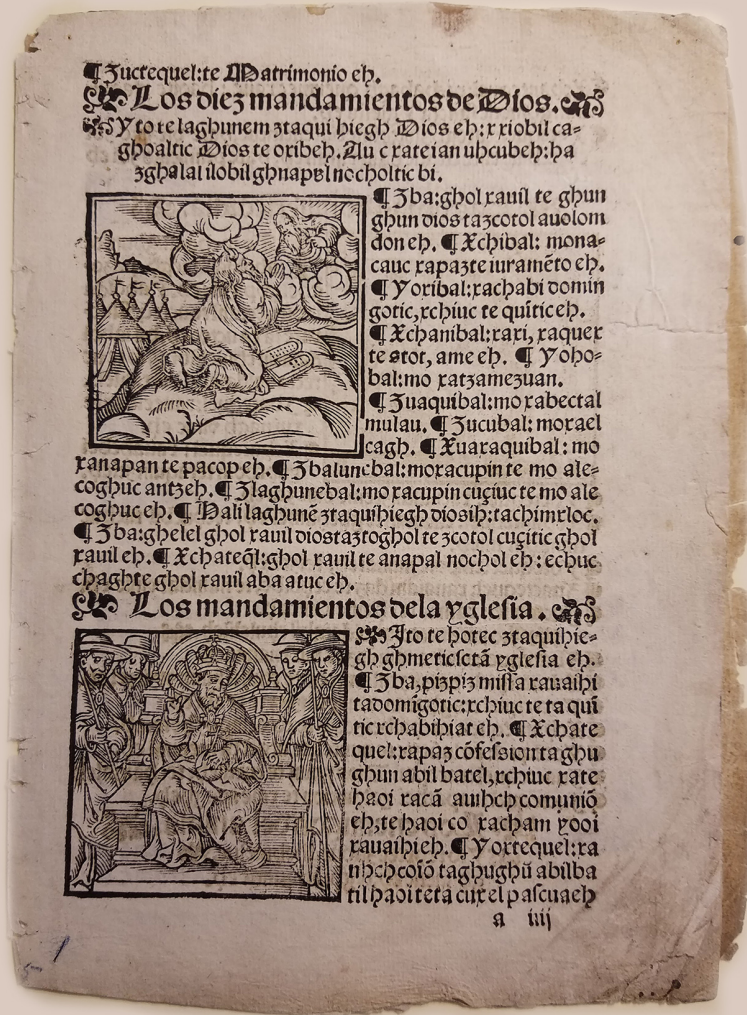 ¶ Ʒuctequel:te Matrimonio eh.
Los diez mandamientos de Dios.
Yto te laghunem ʒtaqui hiegh Dios eh: x xiobil ca-
ghoaltic Dios te oxibeh. Au c xate ian uhcubeh: ha
ʒghalal ilobil ghnapel nocholtic bi.
¶ Ʒba: ghol xauil te ghun
ghun dios taʒcotol auolom
don eh. ¶ Xchibal: mona-
cauc xapaʒte iuramẽto eh.
¶ Yoxibal: xachabi domin
gotic, xchiuc te quĩtic eh.
¶ Xchanibal: xaxi, xaquex
te atot, ame eh. ¶ Yoho-
bal: mo xatʒameʒuan.
¶ Ʒuaquibal: mo xabectal
mulau. ¶ Ʒucubal: moxael
cagh. ¶ Xuaxaquibal: mo
xanapan te pacop eh. ¶ Ʒbalunebal: moxacupin te mo ale-
coghuc antʒeh. ¶ Ʒlaghunebal: mo xacupin cuçiuc te mo ale
coghuc eh. ¶ Hali laghunẽ ʒtaquihiegh diosih: tachimxloc.
¶ Ʒba: ghelel ghol xauil diostaʒtoghol te ʒcotol cuçitic ghol
xauil eh. ¶ Xchateq̃l: ghol xauil te anapal nochol eh: echuc
chaghte ghol xauil aba atuc eh.
Los mandamientos dela yglesia.
Ito te hotec ʒtaquihie-
gh ghmeticsctã yglesia eh.
¶ Ʒba, piʒpiʒ missa xauaihi
tadomĩgotic: xchiuc te ta quĩ
tic xchabihiat eh. ¶ Xchate
quel: xapaʒ cõfession ta ghu
ghun abil batel, xchiuc xate
haoi xacã auihch comuniõ
eh, te haoi co xacham yooi
xauaihieh. ¶ Yoxtequel: xa
uhch coiõ taghughũ abilba
til haoi teta cuxel pascuaeh
a iiij